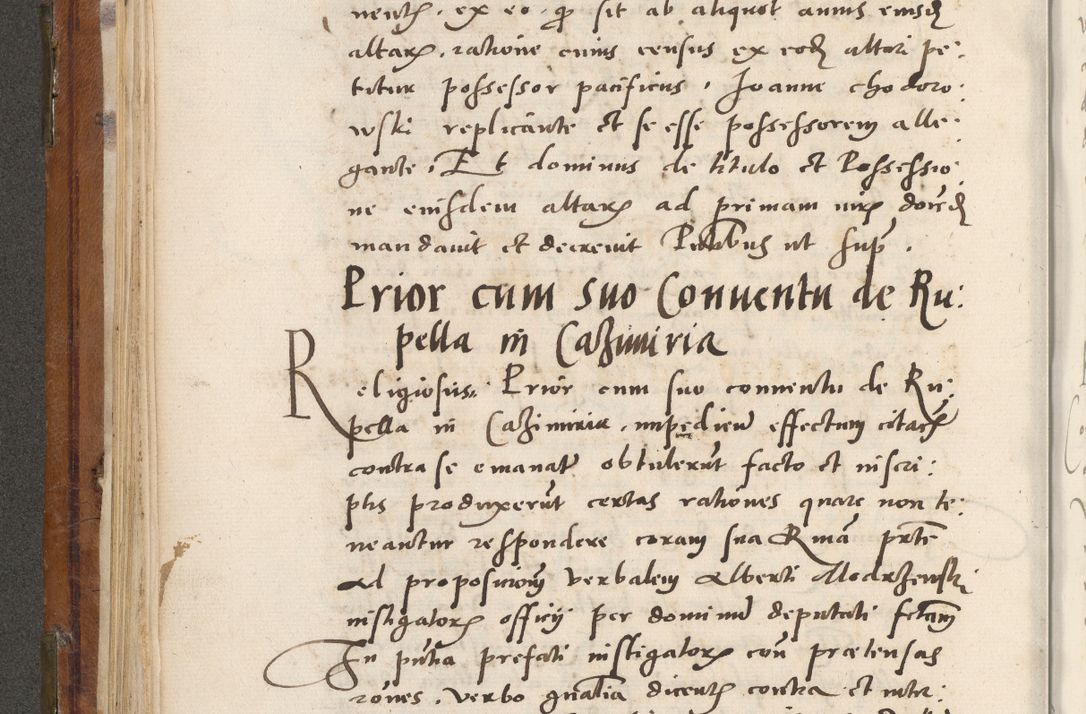 nentꝝ. ex eo. ꝙ sit ab aliquot annis eiusdꝫ
altarꝝ. ratione cuius census ex eodꝫ altari pe:
titur possessor pacificus. Joanne chodoro
wski replicante et se esse possessorem alle:
gante. Et dominus de titulo et Possessio:
ne eiusdem altarꝝ ad primam iurꝝ docēdꝫ
mandauit et decreuit Partibus ut supͣ.
Prior cum suo Conuentu de Ru:
pella in Cazimiria
Religiosus. Prior cum suo conuentu de Ru:
pella in Cazimiria. impediens effectum citaꝝ
contra se emanatꝝ obtulerūt facto et inscri:
ptis produxerūt certas rationes quare non te:
neantur respondere coram sua R̃ma prñte
ad propositionꝫ verbalem Alberti Modrzewskj
instigatorꝝ officij per dominũ deputati fctam
In pñtia prefati instigatorꝝ coñ prætensas
rões. verbo gnalia dicentꝝ contra et inter: